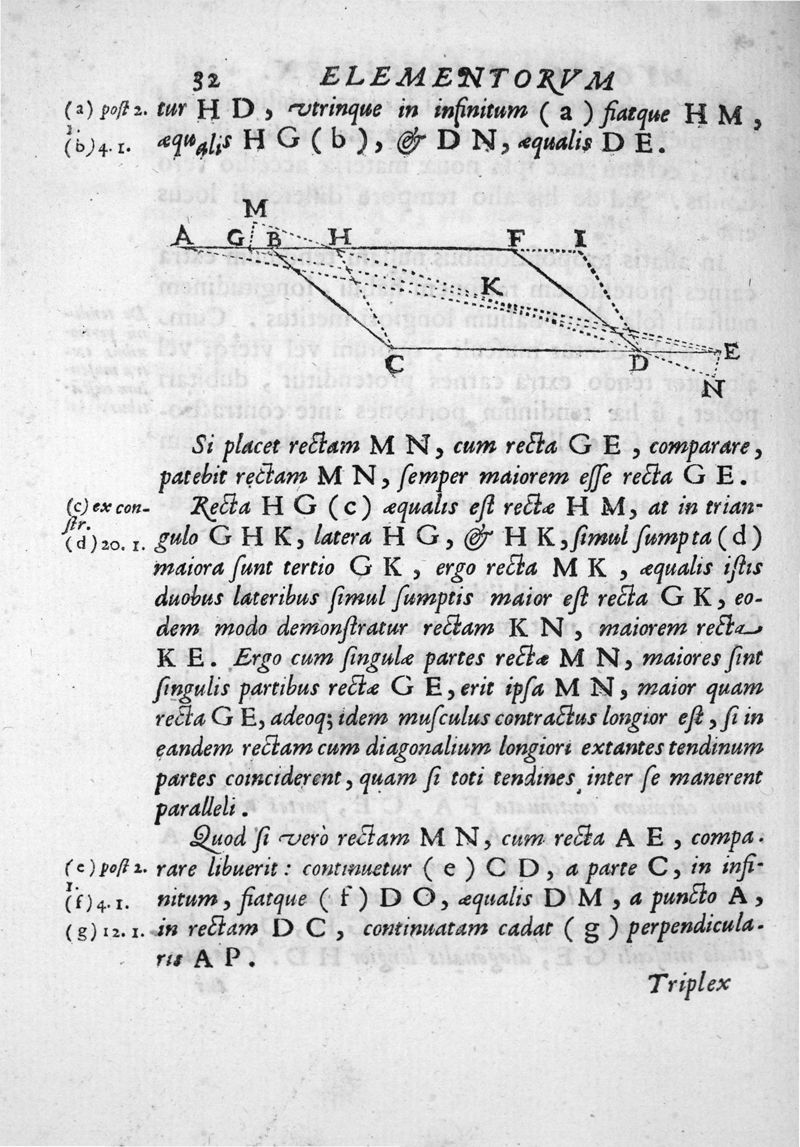 32 ELEMENTORVM
(a) post 2. tur H D, vtrinque in infinitum (a) fiatque H M,
1.
(b) 4. 1. æqualis H G (b), & D N, æqualis D E.
M
A G B H F I
K
C D E
N
Si placet rectam M N, cum recta G E, comparare,
patebit rectam M N, semper maiorem esse recta G E.
(c) ex con- Recta H G (c) æqualis est rectæ H M, at in trian-
str.
(d) 20. 1. gulo G H K, latera H G, & H K, simul sumpta (d)
maiora sunt tertio G K, ergo recta M K, æqualis istis
duobus lateribus simul sumptis maior est recta G K, eo-
dem modo demonstratur rectam K N, maiorem recta
K E. Ergo cum singulæ partes rectæ M N, maiores sint
singulis partibus rectæ G E, erit ipsa M N, maior quam
recta G E, adeoq; idem musculus contractus longior est, si in
eandem rectam cum diagonalium longiori extantes tendinum
partes coinciderent, quam si toti tendines inter se manerent
paralleli.
Quod si verò rectam M N, cum recta A E, compa-
(e) post 2. rare libuerit: continuetur (e) C D, a parte C, in infi-
1.
(f) 4. 1. nitum, fiatque (f) D O, æqualis D M, a puncto A,
(g) 12. 1. in rectam D C, continuatam cadat (g) perpendicula-
ris A P.
Triplex